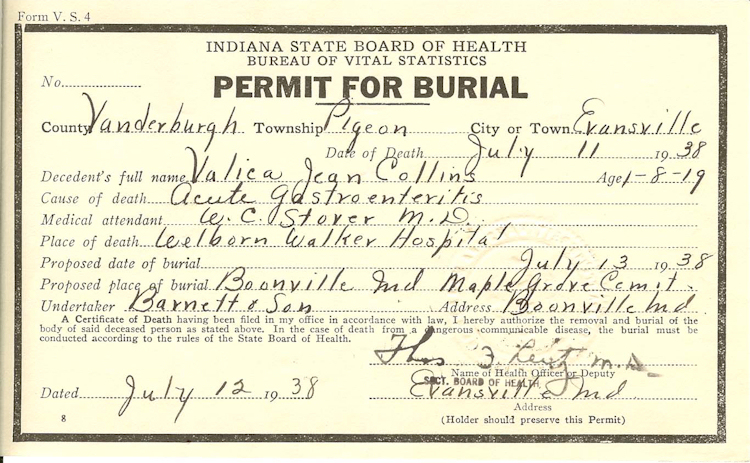 Form V. S. 4
INDIANA STATE BOARD OF HEALTH
BUREAU OF VITAL STATISTICS
No.
PERMIT FOR BURIAL
County Vanderburgh Township Pigeon City or Town Evansville
Date of Death July 11 1938
Decedent's full name Valica Jean Collins Age 1-8-19
Cause of death Acute Gastroenteritis
Medical attendant W. C. Stover M.D.
Place of death Welborn Walker Hospital
Proposed date of burial July 13 1938
Proposed place of burial Boonville Ind Maple Grove Cemt.
Undertaker Barnett & Son Address Boonville Ind
A Certificate of Death having been filed in my office in accordance with law, I hereby authorize the removal and burial of the
body of said deceased person as stated above. In the case of death from a dangerous communicable disease, the burial must be
conducted according to the rules of the State Board of Health.
Thos M.D.
Name of Health Officer or Deputy
SECT. BOARD OF HEALTH
Dated July 12 1938 Evansville Ind
Address
8 (Holder should preserve this Permit)